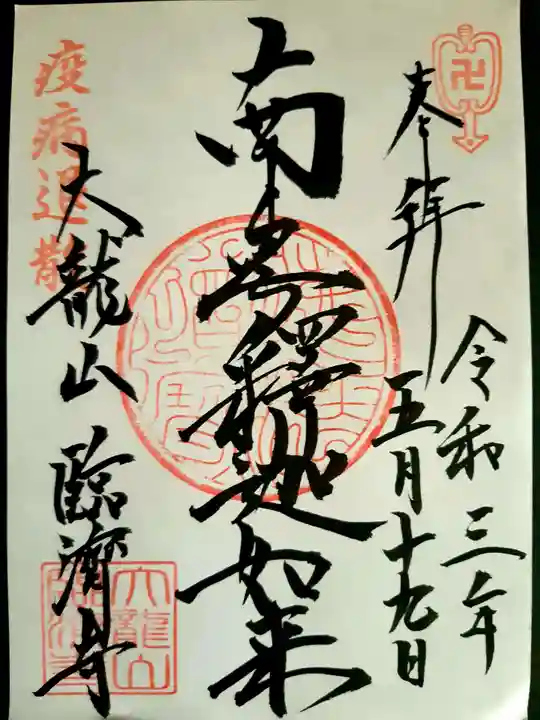 奉拝
令和三年
五月十九日
南無釋迦如来
疫病退散
大龍山 臨濟寺
大龍山
臨済寺